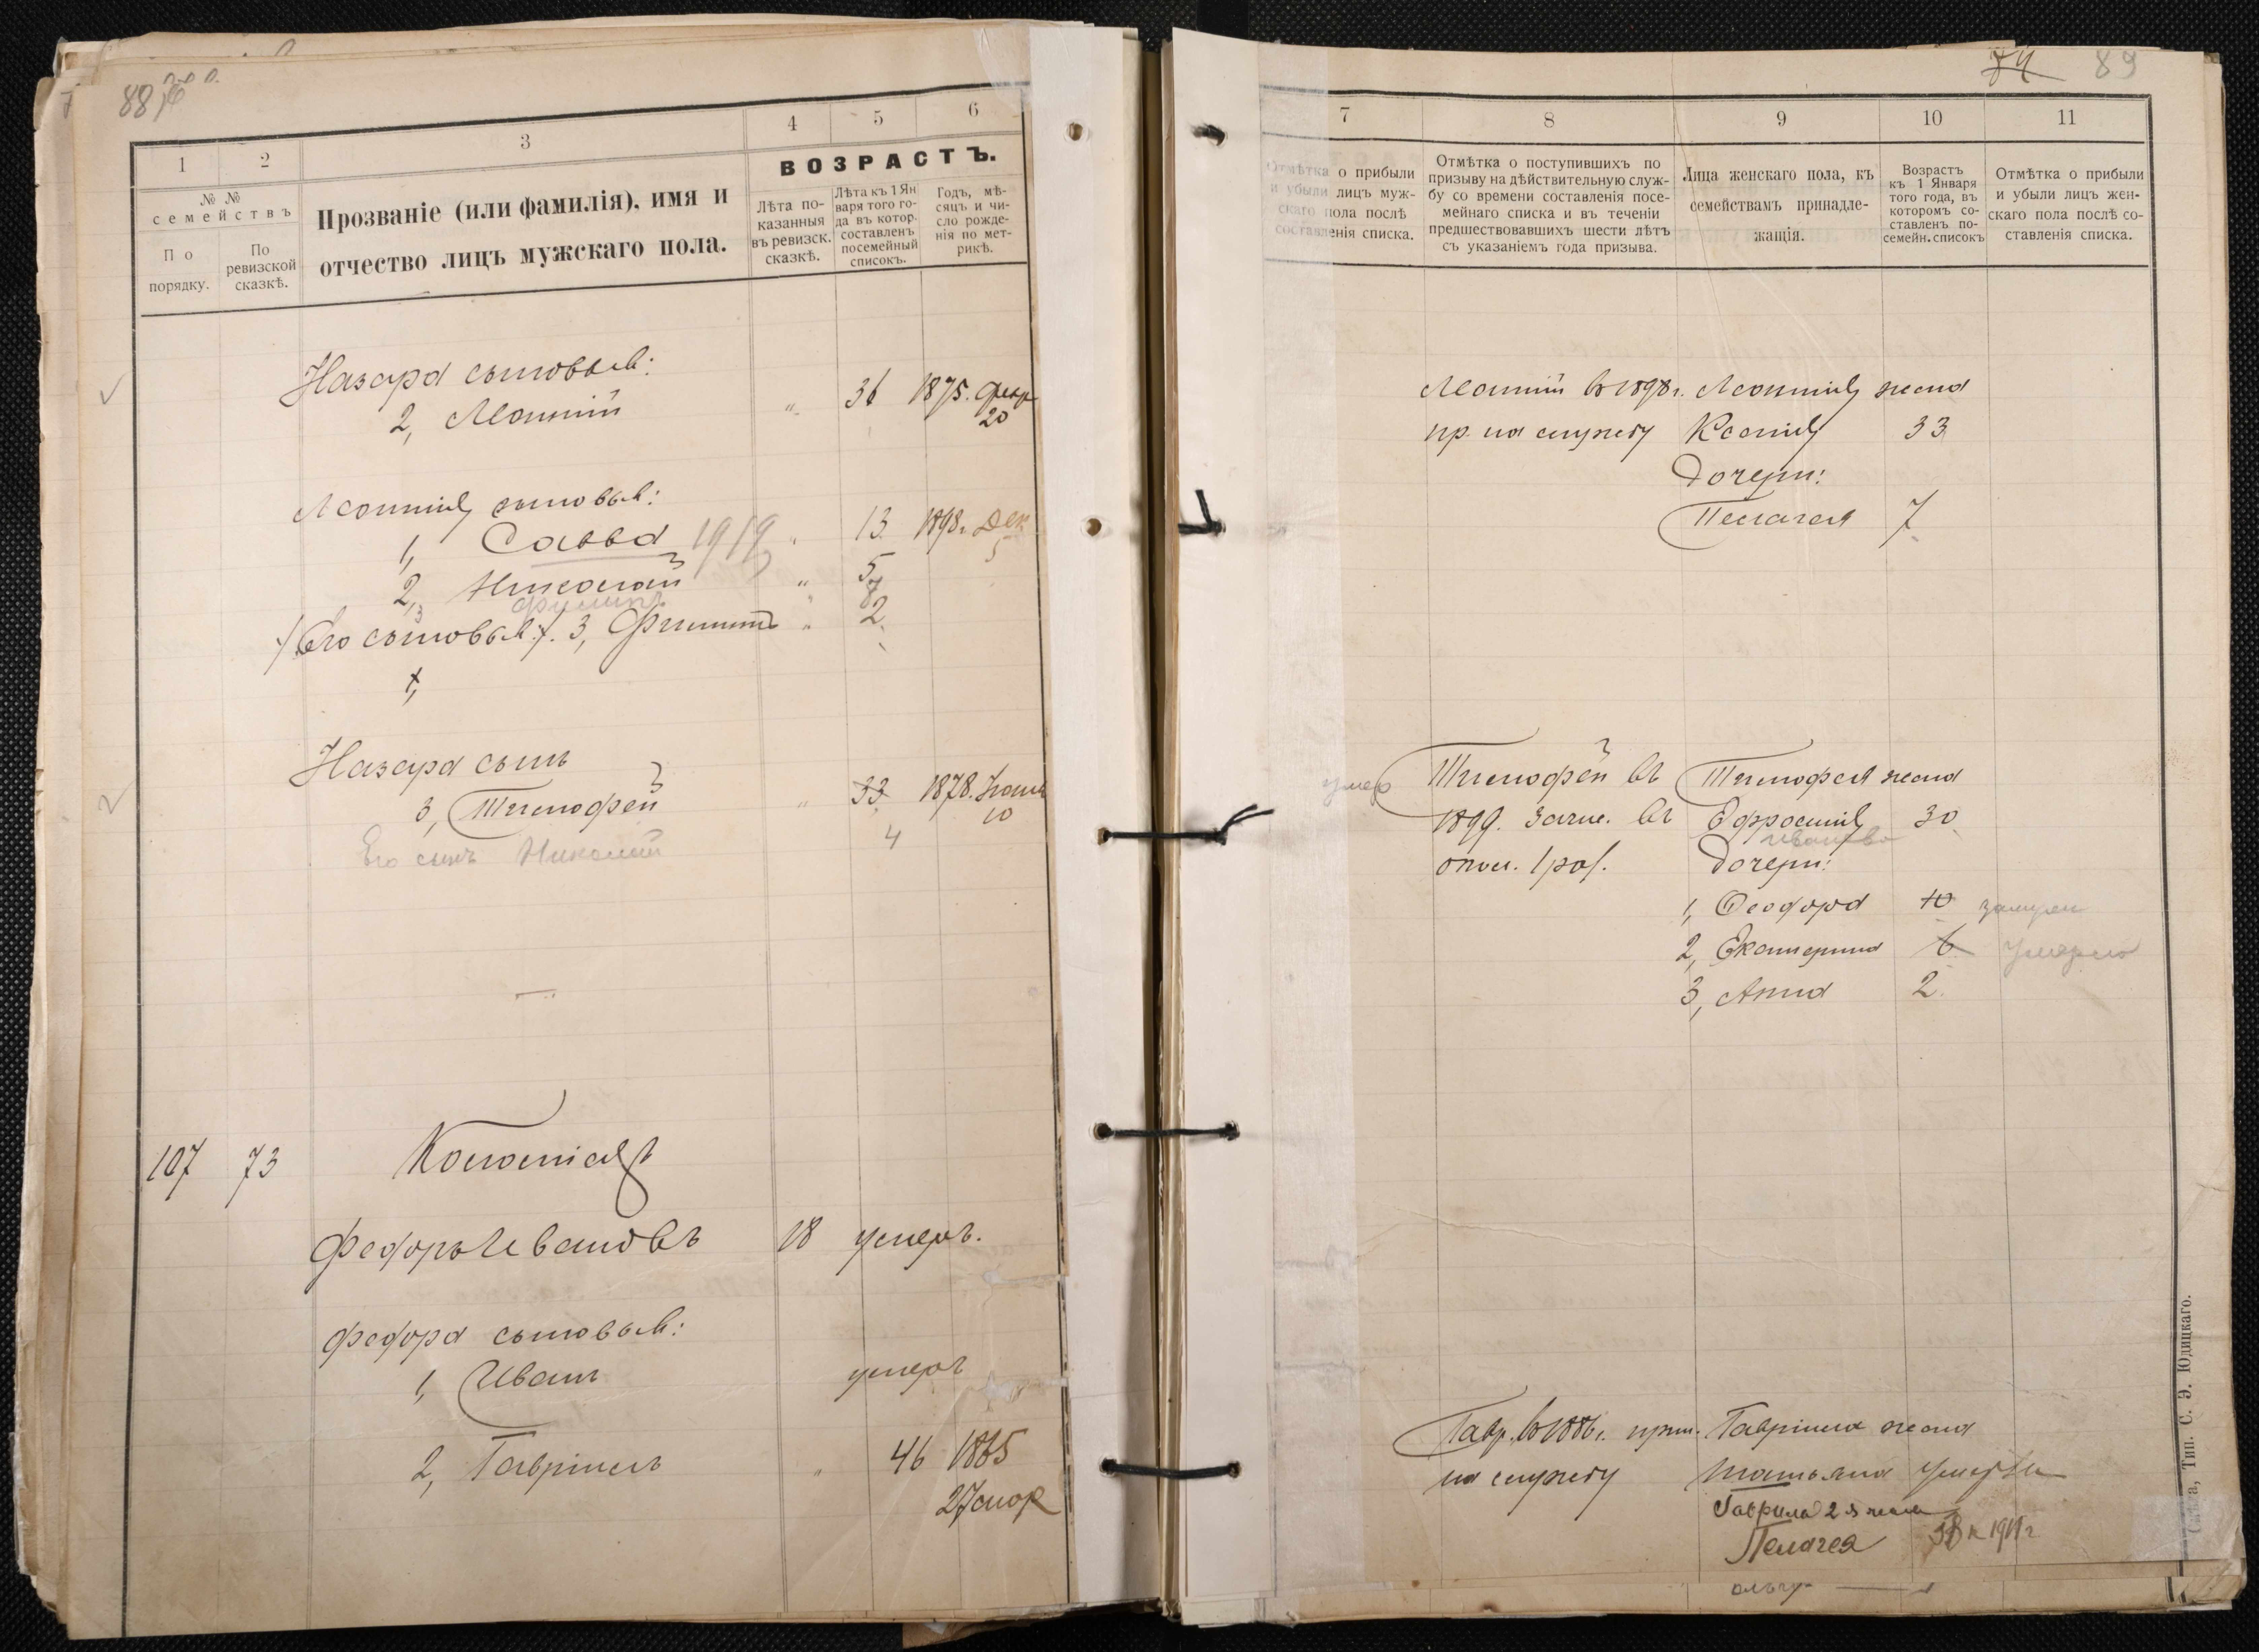 88
1
2
3
4
5
6
№ №
семействъ
По
порядку.
По
ревизской
сказкѣ.
Прозваніе (или фамилія), имя и
отчество лицъ мужскаго пола.
ВОЗРАСТЪ.
Лѣта по-
казанныя
въ ревизск.
сказкѣ.
Лѣта къ 1 Ян
варя того го-
да въ котор.
составленъ
посемейный
списокъ.
Годъ, мѣ-
сяцъ и чи-
сло рожде-
нія по мет-
рикѣ.
Назара сыновья:
2, Леонтій " 36 1875. Февр
20
Леонтія сыновья:
1, Савва 1919 " 13 1898. Дек
5
2, Николай " 5
Филиппъ
Его сыновья: 3, Филиппъ " 2
1,
Назара сынъ
3, Тимофей " 33 1878. Іюня
10
Его сынъ Николай 4
107 73
Федоръ Ивановъ 18 умеръ.
Федора сыновья:
1, Иванъ умеръ
2, Гавріилъ " 46 1865
27 мар
74 89
7
8
9
10
11
Отмѣтка о прибыли
и убыли лицъ муж-
скаго пола послѣ
составленія списка.
Отмѣтка о поступившихъ по
призыву на дѣйствительную служ-
бу со времени составленія посе-
мейнаго списка и въ теченіи
предшествовавшихъ шести лѣтъ
съ указаніемъ года призыва.
Лица женскаго пола, къ
семействамъ принадле-
жащія.
Возрастъ
къ 1 Января
того года, въ
которомъ со-
ставленъ по-
семейн. списокъ
Отмѣтка о прибыли
и убыли лицъ жен-
скаго пола послѣ со-
ставленія списка.
Леонтій в 1898 г. Леонтія жена
пр. на службу Ксенія 33
Дочери:
Пелагея 7
умер Тимофей въ Тимофея жена
1899. зачис. въ Ефросинія 30
ополч. 1 раз. Дочери:
1, Феодора 10 замужем
2, Екатерина 6 умерла
3, Анна 2
Гавр. в 1886 г. прин. Гавріила жена
на службу Татьяна умерла
Гаврила 2я жена
Пелагея 38 к 1911 г
ольга
Тип. С. Э. Юдицкаго.